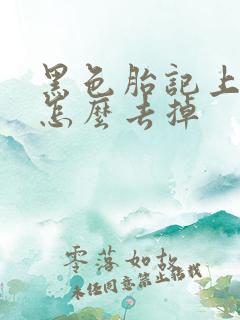 黑色胎記上
怎麼去掉
零落如故
未经同意禁止搭我